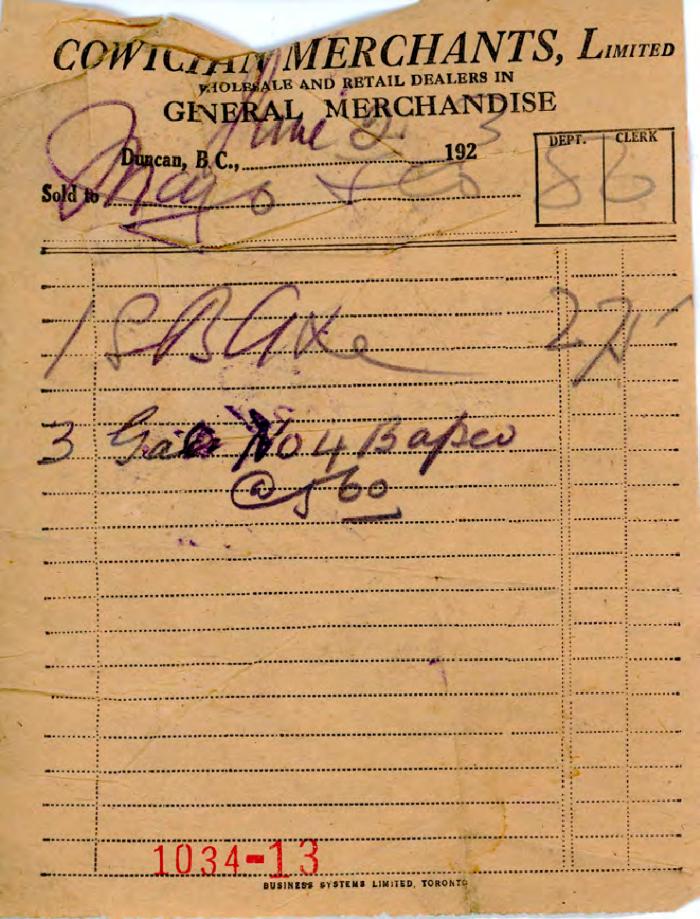 COWICHAN MERCHANTS, LIMITED
WHOLESALE AND RETAIL DEALERS IN
GENERAL MERCHANDISE
June 2 3
Duncan, B.C., 192
DEPT. CLERK
Sold to Mayo & Co
1 S B Axe 2 75
3 Gals No 4 Bapco
@ 5 60
1034-13
BUSINESS SYSTEMS LIMITED, TORONTO